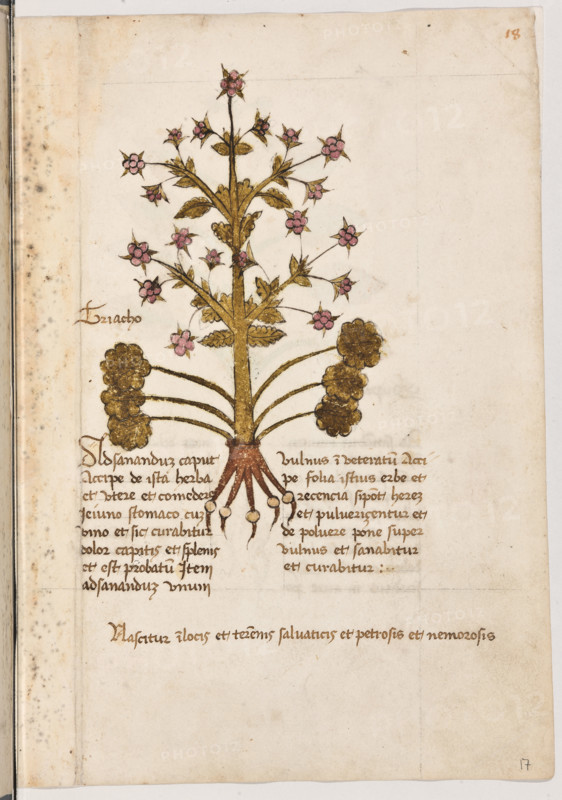 18
Griacho
Adsananduz caput
Accipe de ista herba
et vtere et comedere
Jeiuno stomaco cuz
vino et sic curabitur
dolor capitis et splenis
et est probatū Item
adsananduz vnum
vulnus ī veteratū Acci
pe folia istius erbe et
recencia sipōt herez
et pulverizentur et
de poluere pone super
vulnus et sanabitur
et curabitur :~
Nascitur īlocis et terēnis saluaticis et petrosis et nemorosis
17